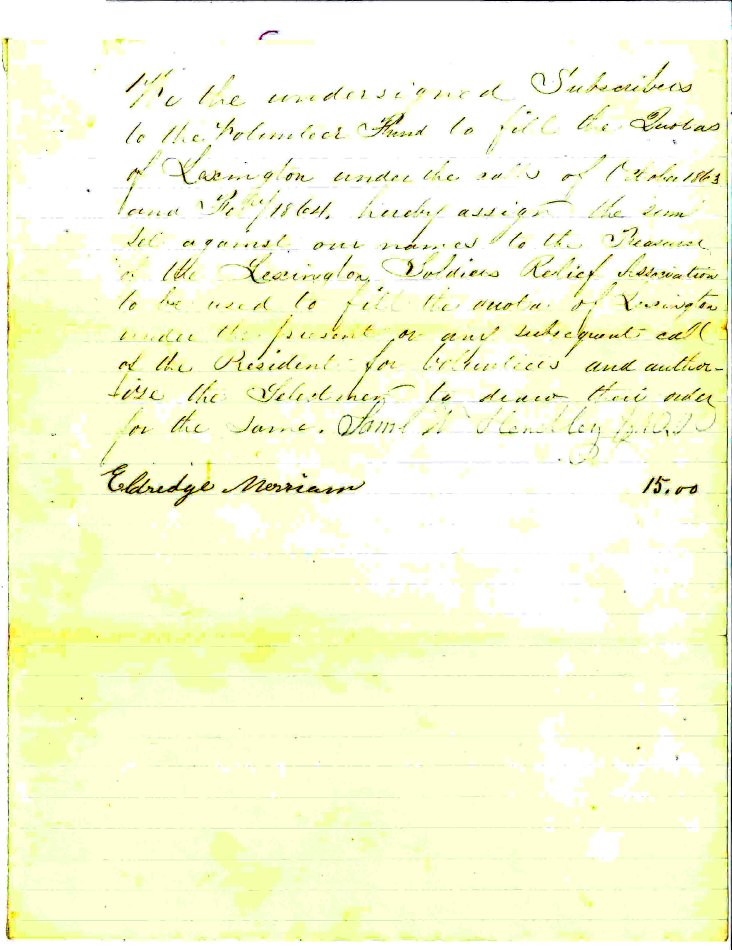 We the undersigned Subscribers
to the Volunteer Fund to fill the Quotas
of Lexington under the calls of October 1863
and Feby 1864, hereby assign the sum
set against our names to the Treasurer
of the Lexington Soldiers Relief Association
to be used to fill the quota of Lexington
under the present or any subsequent call
of the President for Volunteers and author-
ize the Selectmen to draw their order
for the same.
Eldredge Merriam 15.00